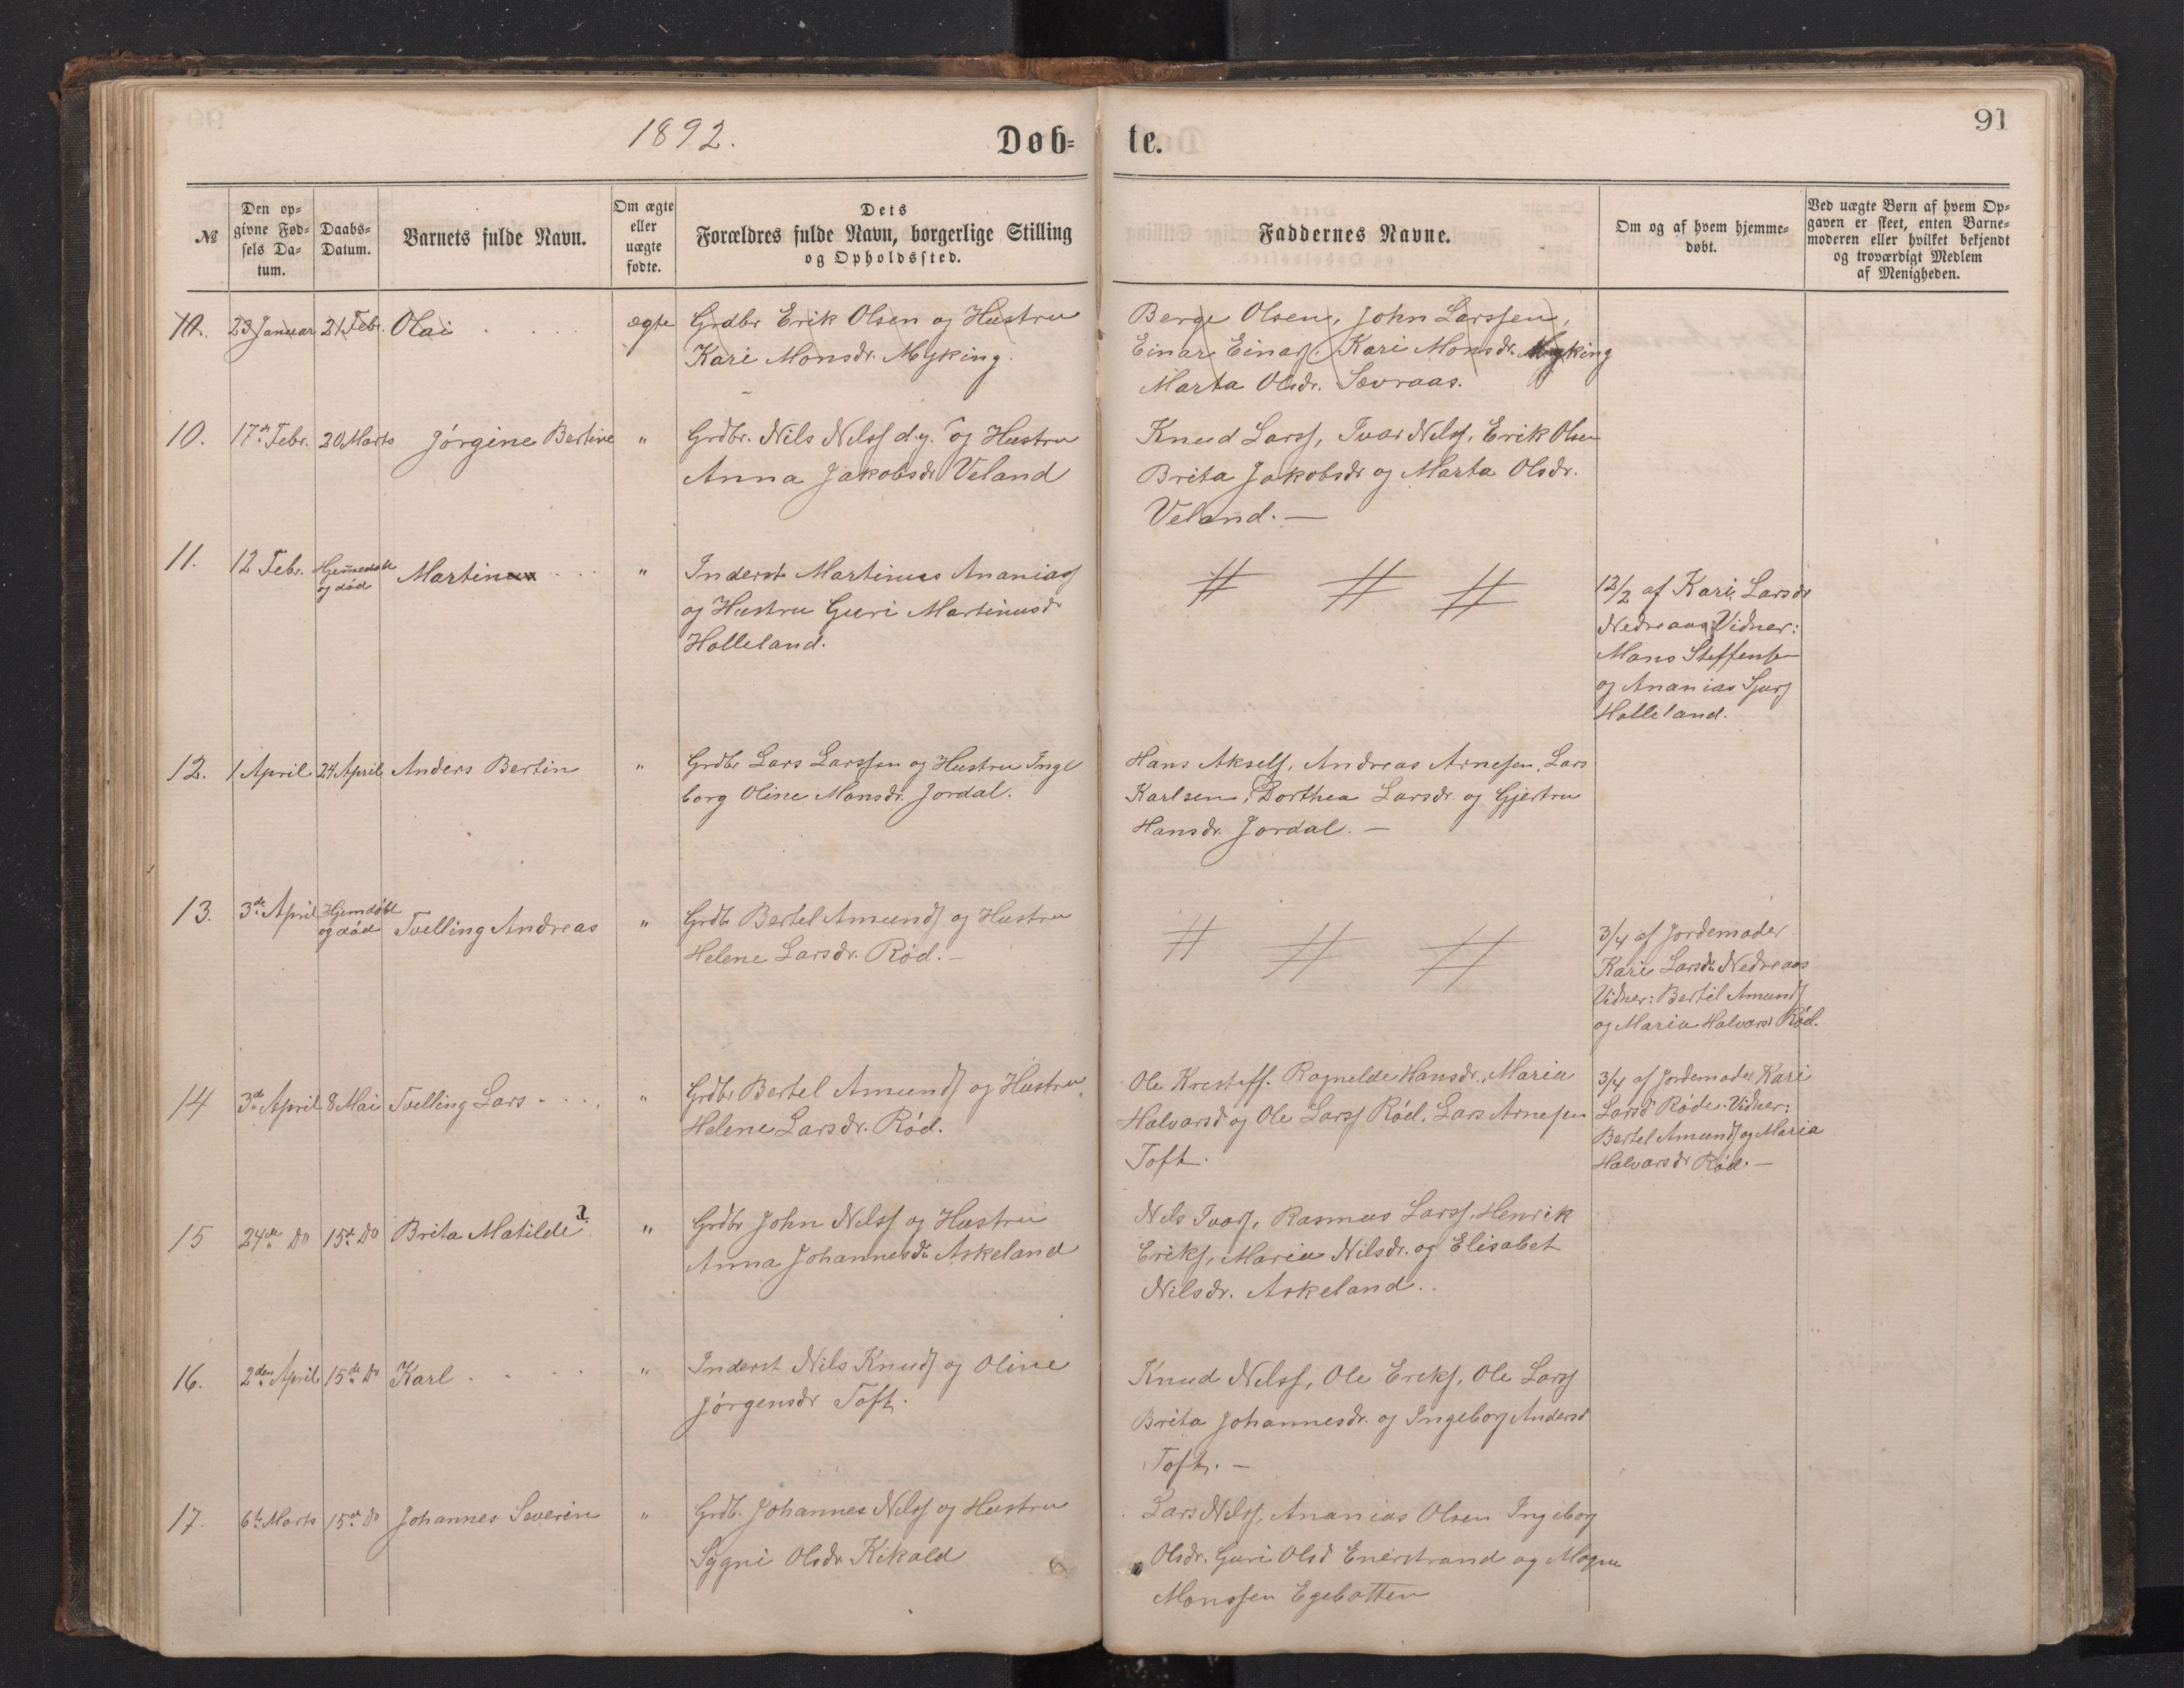 91
1892.
Døb-
te.
№
Den op-
givne Fød-
sels Da-
tum.
Daabs-
Datum.
Barnets fulde Navn.
Om ægte
eller
uægte
fødte.
Dets
Forældres fulde Navn, borgerlige Stilling
og Opholdssted.
Faddernes Navne.
Om og af hvem hjemme-
døbt.
Ved uægte Børn af hvem Op-
gaven er skeet, enten Barne-
moderen eller hvilket bekjendt
og troværdigt Medlem
af Menigheden.
23 Januar 21 Febr. Olai . . . . ægte
Grdbr Erik Olsen og Hustru
Kari Monsdr. Myking.
Berge Olsen, John Larssen,
Einar Einars. Kari Monsdr. Myking
Marta Olsdr. Sævraas.
10. 17de Febr. 20 Marts Jørgine Bertine "
Grdbr. Nils Nilss d.y. og Hustru
Anna Jakobsdr Veland
Knud Larss, Ivar Nilss, Erik Olsen
Brita Jakobsdr og Marta Olsdr.
Veland. —
11. 12 Febr. Hjemmedøbt
og død
Martin . . . "
Inderst Martinus Ananiass
og Hustru Guri Martinusdr
Holleland.
# # #
12/2 af Kari Larsdr
Nedreaas, Vidner:
Mons Steffensen
og Ananias Sjurs
Holleland.
12. 1 April 24 April Anders Bertin "
Grdbr Lars Larssen og Hustru Inge
borg Oline Monsdr. Jordal.
Hans Aksels, Andreas Arnesen, Lars
Karlsen, Dorthea Larsdr. og Gjertru
Hansdr. Jordal. —
13. 3de April Hjemdøbt
og død
Tvelling Andreas "
Grdb. Bertel Amunds og Hustru
Helene Larsdr. Rød. —
# # #
3/4 af Jordemoder
Kari Larsdr. Nedreaas
Vidner: Bertil Amunds
og Maria Halvarsd Rød.
14 3de April 8 Mai Tvelling Lars . . . "
Grdbr Bertel Amunds og Hustru
Helene Larsdr. Rød.
Ole Kristoff. Ragnelde Hansdr., Maria
Halvarsd og Ole Larss Rød, Lars Arnesen
Toft.
3/4 af Jordemoder Kari
Larsd Røde. Vidner:
Bertel Amunds og Maria
Halvarsdr Rød. —
15 24de Do 15de Do Brita Matilde "
Grdbr John Nilss og Hustru
Anna Johannesdr. Askeland
Nils Ivars, Rasmus Larss, Henrik
Eriks, Maria Nilsdr. og Elisabet
Nilsdr. Askeland.
16. 2den April 15de Do Karl . . . . "
Inderst Nils Knuds og Oline
Jørgensdr Toft.
Knud Nilss, Ole Eriks, Ole Larss
Brita Johannesdr. og Ingeborg Andersd
Toft. —
17. 6te Marts 15de Do Johannes Severin "
Grdb. Johannes Nilss og Hustru
Sygni Olsdr Kikald
Lars Nilss, Ananias Olsen Ingeborg
Olsdr. Guri Olsd Enerstrand og Mogne
Monssen Egebotten